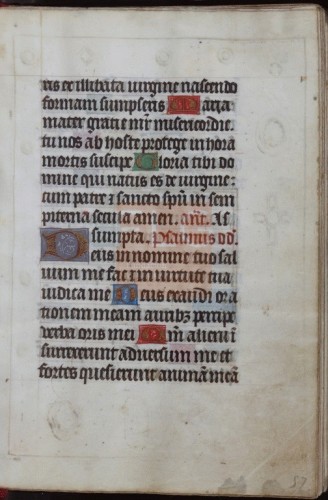 ris ex illibata uirgine nascendo
formam sumpseris Maria
mater gratie mr̄ misericordie.
tu nos ab hoste protege in hora
mortis suscipe Gloria tibi do
mine qui natus es de uirgine:
cum patre z sancto spū in sem
piterna secula amen. Añt. As
sumpta. Psalmus dd̄.
Deus in nomine tuo sal
uum me fac z in uirtute tua
iudica me Deus exaudi ora
tionem meam auribz percipe
verba oris mei Qm̄ alieni ī
surrexerunt aduersum me et
fortes quesierunt animā meā
57